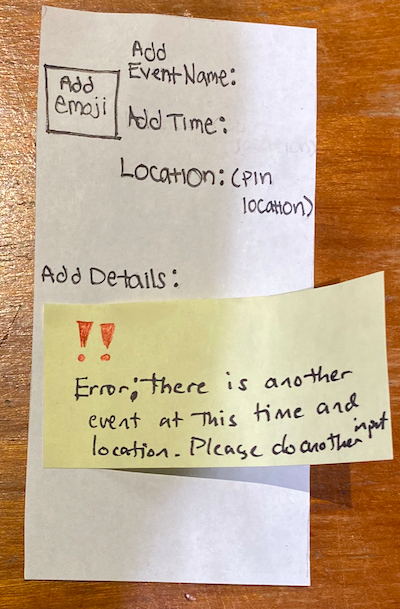 Add
Event Name:
Add
emoji
Add Time:
Location: (Pin
location)
Add Details:
!!
Error; there is another
event at this time and
location. Please do another input